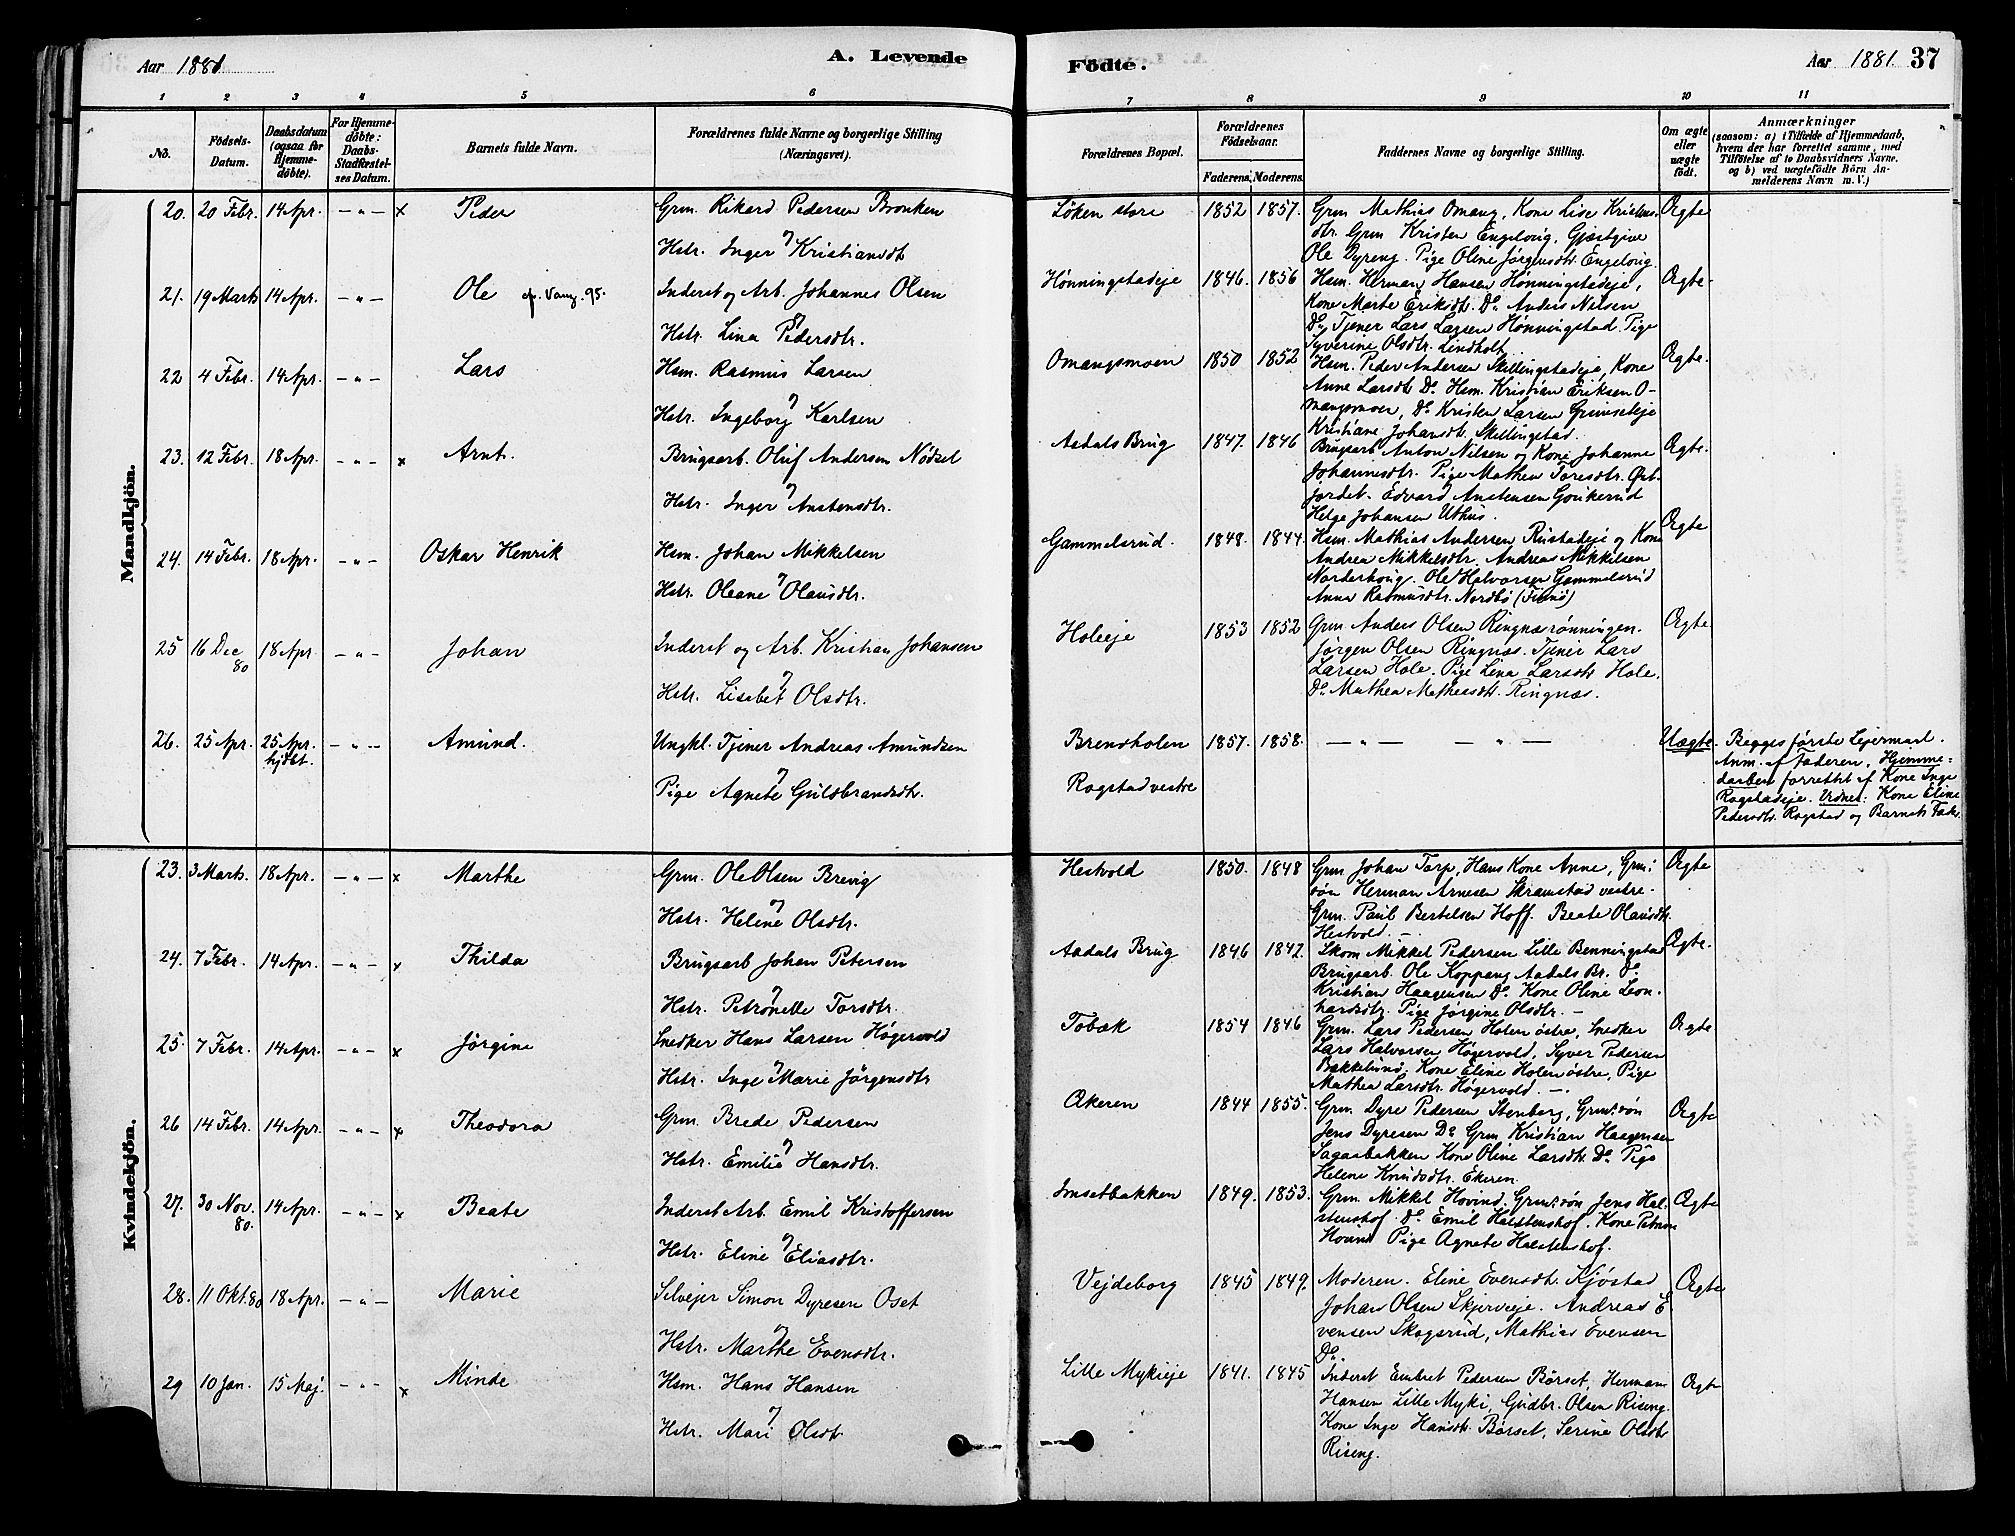 Aar 1881
A. Levende
Födte.
Aar 1881. 37
1 2 3 4 5 6 7 8 9 10 11
No.
Födsels-
Datum.
Daabsdatum
(ogsaa for
Hjemme-
döbte).
For Hjemme-
döbte:
Daabs-
Stadfæstel-
ses Datum.
Barnets fulde Navn.
Forældrenes fulde Navne og borgerlige Stilling
(Næringsvei).
Forældrenes Bopæl.
Forældrenes
Födselsaar.
Faderens. Moderens.
Faddernes Navne og borgerlige Stilling.
Om ægte
eller
uægte
födt.
Anmærkninger
(saasom: a) i Tilfælde af Hjemmedaab,
hvem der har forrettet samme, med
Tilföielse af to Daabsvidners Navne.
og b) ved uægtefödte Börn An-
melderens Navn m.V.)
Mandkjön.
20. 20 Febr. 14 Apr. — " — x Peder
Grm. Rikard Pedersen Bronken
Hstr. Inger Kristiansdt.
Løken store 1852 1857.
Grm Mathias Omang, Kone Lise Kristens-
dtr. Grm Kristen Engeloug, Gjæstgive
Ole Dyreng. Pige Oline Jørgensdtr. Engeloug.
Ægte
21. 19 Marts 14 Apr. — " — Ole
Inderst og Arb. Johannes Olsen
Hstr. Lina Pedersdtr.
Hønningstadeje 1846. 1856
Hsm. Herman Hansen Hønningstadeje,
Kone Marte Eriksdt. Do. Anders Nilsen
Do, Tjener Lars Larsen Hønningstad. Pige
Syverine Olsdtr. Lindholt.
Ægte.
22 4 Febr. 14 Apr. — " — Lars
Hsm. Rasmus Larsen
Hstr. Ingeborg Karlsen
Omangsmoen 1850 1852
Hsm. Peder Andersen Skillingstadeje, Kone
Anne Larsdt. Do. Hsm. Kristian Eriksen O-
mangsmoen, Do Kristen Larsen Grimseteje
Kristiane Johansdt. Skillingstad.
Ægte.
23. 12 Febr. 18 Apr. — " — x Arnt.
Brugsarb. Oluf Andersen Nødset
Hstr. Inger Anstensdtr.
Aadals Brug 1847. 1846
Brugsarb Anton Nilsen og Kone Johanne
Johannesdtr. Pige Mathea Toresdtr. Øst-
jordet. Edvard Anstensen Goukerud
Helge Johansen Uthus.
Ægte.
24. 14 Febr. 18 Apr. — " — Oskar Henrik
Hsm. Johan Mikkelsen
Hstr. Oleane Olausdtr.
Gammelsrud. 1848. 1844.
Hsm. Mathias Andersen Rustadeje og Kone
Andrea Mikkelsdtr. Andreas Mikkelsen
Norderhoug. Ole Halvorsen Gammelsrud
Anna Rasmusdtr. Nordbø
Ægte
25 16 Dec 80 18 Apr. — " — Johan
Inderst og Arb. Kristian Johansen
Hstr. Lisebet Olsdtr.
Holeeje 1853 1852
Grm. Anders Olsen Ringnæsrønningen.
Jørgen Olsen Ringnæs. Tjener Lars
Larsen Hole. Pige Lina Larsdtr Hole.
Do Mathea Matheasdt. Ringnæs.
Ægte
26. 25 Apr. 25 Apr. hjdbt. — " — Amund.
Ungkl. Tjener Andreas Amundsen
Pige Agnete Guldbrandsdtr.
Brendholen
Rogstad vestre
1857. 1858. — " — — " —
Uægte.
Begges første Lejermaal.
Anm. af Faderen. Hjemme-
daaben forrettet af Kone Inge
Rogstadeje. Vidner: Kone Eline
Pedersdtr. Rogstad og Barnets Fader.
Kvindekjön.
23. 3 Marts. 18 Apr. — " — x Marthe
Grm. Ole Olsen Brevig
Hstr. Helene Olsdtr.
Hestvold 1850. 1848
Grm Johan Torp, Hans Kone Anne, Grm.-
søn Herman Arnesen Skramstad vestre.
Grm. Paul Bertelsen Hoff. Beate Olausdtr.
Hestvold. —
Ægte
24. 7 Febr. 14 Apr. — " — x Thilda
Brugsarb Johan Petersen
Hstr. Petronelle Torsdtr.
Aadals Brug 1846 1842.
Skom Mikkel Pedersen Lille Benningstad
Brugsarb. Ole Koppang Aadals Br. Do.
Kristian Haagensen Do. Kone Oline Leon-
hardsdt. Pige Jørgine Olsdtr. —
Ægte.
25. 7 Febr. 14 Apr. — " — x Jørgine
Snedker Hans Larsen Høgervold
Hstr. Inge Marie Jörgensdtr
Tobæk 1854 1846
Grm. Lars Pedersen Holen østre, Snedker
Lars Halvorsen Høgervold, Syver Pedersen
Bakkelund. Kone Eline Holen østre, Pige
Mathea Larsdtr. Høgervold —
Ægte.
26 14 Febr. 14 Apr. — " — x Theodora
Grm. Brede Pedersen
Hstr. Emilie Hansdtr.
Økeren 1844 1855.
Grm. Dyre Pedersen Stenberg, Grm.søn
Jens Dyresen Do Grm Kristian Haagensen
Sagaabakken Kone Oline Larsdt. Do. Pige
Helene Knudsdtr. Ekeren.
Ægte
27. 30 Nov. 80. 14 Apr. — " — x Beate
Inderst Arb. Emil Kristoffersen
Hstr. Eline Eliasdtr.
Imsetbakken 1849. 1853.
Grm. Mikkel Hovind, Grm.søn Jens Hal-
stenshof. Do. Emil Halstenshof. Kone Petrine
Hovind Pige Agnete Halstenshof.
Ægte
28. 11 Okt. 80 18 Apr. — " — Marie
Selvejer Simon Dyresen Oset
Hstr. Marthe Evensdtr.
Vejdeborg 1845 1849.
Moderen. Eline Evensdt. Kjøstad
Johan Olsen Skjerveje. Andreas E-
vensen Skogsrud, Mathias Evensen
Do.
Ægte
29 10 Jan. 15 Maj. — " — x Minde
Hsm. Hans Hansen
Hstr. Mari Olsdt.
Lille Mykieje 1841. 1845
Inderst Embret Pedersen Børset, Herman
Hansen Lille Myki, Gudbr. Olsen Riseng.
Kone Inge Hansdt. Børset, Serine Olsdtr
Riseng.
Ægte